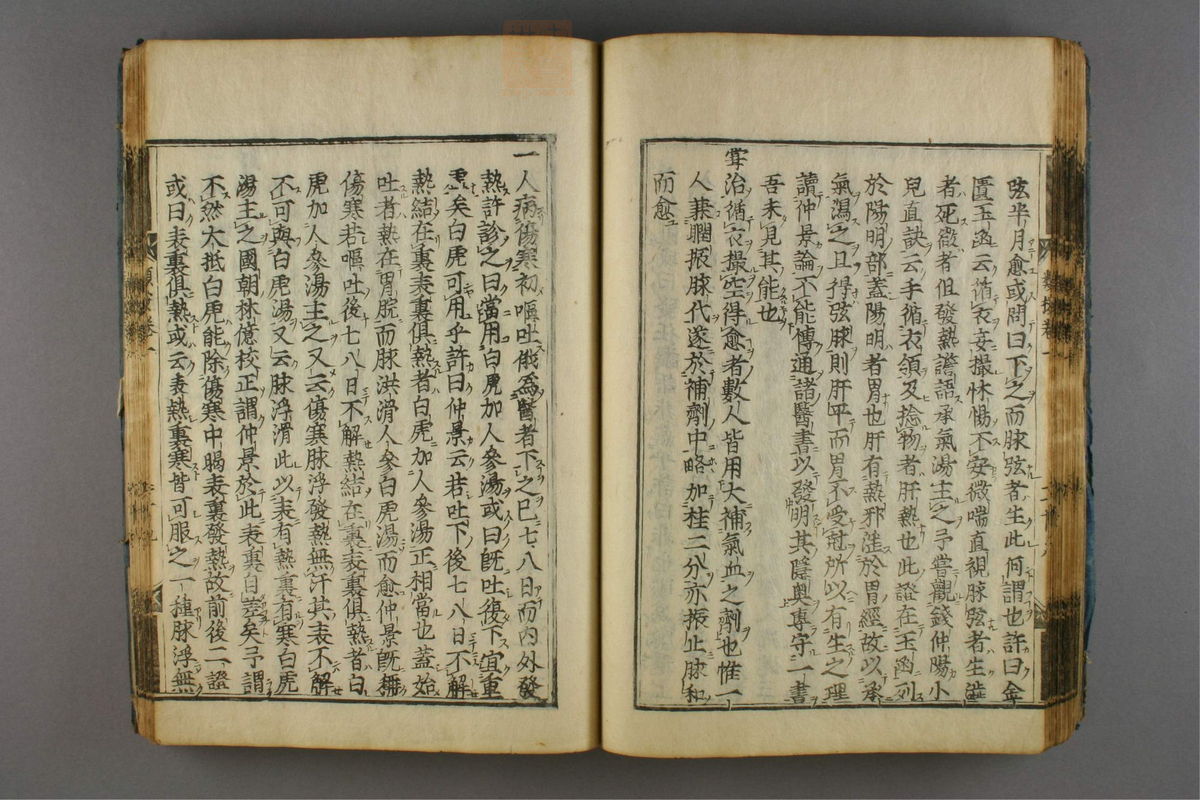 弦半月愈或問曰下之而脉弦者生此何謂也許曰金
匱玉函云循衣妄撮怵惕不安微喘直視脉弦者生澁
者死微者但發熱譫語承氣湯主之予嘗觀錢仲陽小
兒直訣云手循衣領及捻物者肝熱也此證在玉函列
於陽明部蓋陽明者胃也肝有熱邪淫於胃經故以承
氣瀉之且得弦脉則肝平而胃不受尅所以有生之理
讀仲景論不能博通諸醫書以發明其隱奥專守一書
吾未見其能也
甞治循衣撮空得愈者數人皆用大補氣血之劑也惟一
人兼瞤振脉代遂於補劑中略加桂二分亦振止脉和
而愈
一人病傷寒初嘔吐俄爲醫者下之已七八日而内外發
熱許診之曰當用白虎加人參湯或曰既吐復下宜重
虗矣白虎可用乎許曰仲景云若吐下後七八日不解
熱結在裏表裏俱熱者白虎加人參湯正相當也蓋始
吐者熱在胃脘而脉洪滑人參白虎湯而愈仲景既稱
傷寒若嘔吐後七八日不解熱結在裏表裏俱熱者白
虎加人參湯主之又云傷寒脉浮發熱無汗其表不解
不可與白虎湯又云脉浮滑此以表有熱裏有寒白虎
湯主之國朝林億校正謂仲景於此表裏自差矣予謂
不然大抵白虎能除傷寒中暍表裏發熱故前後二證
或曰表裏俱熱或云表熱裏寒皆可服之一種脉浮無